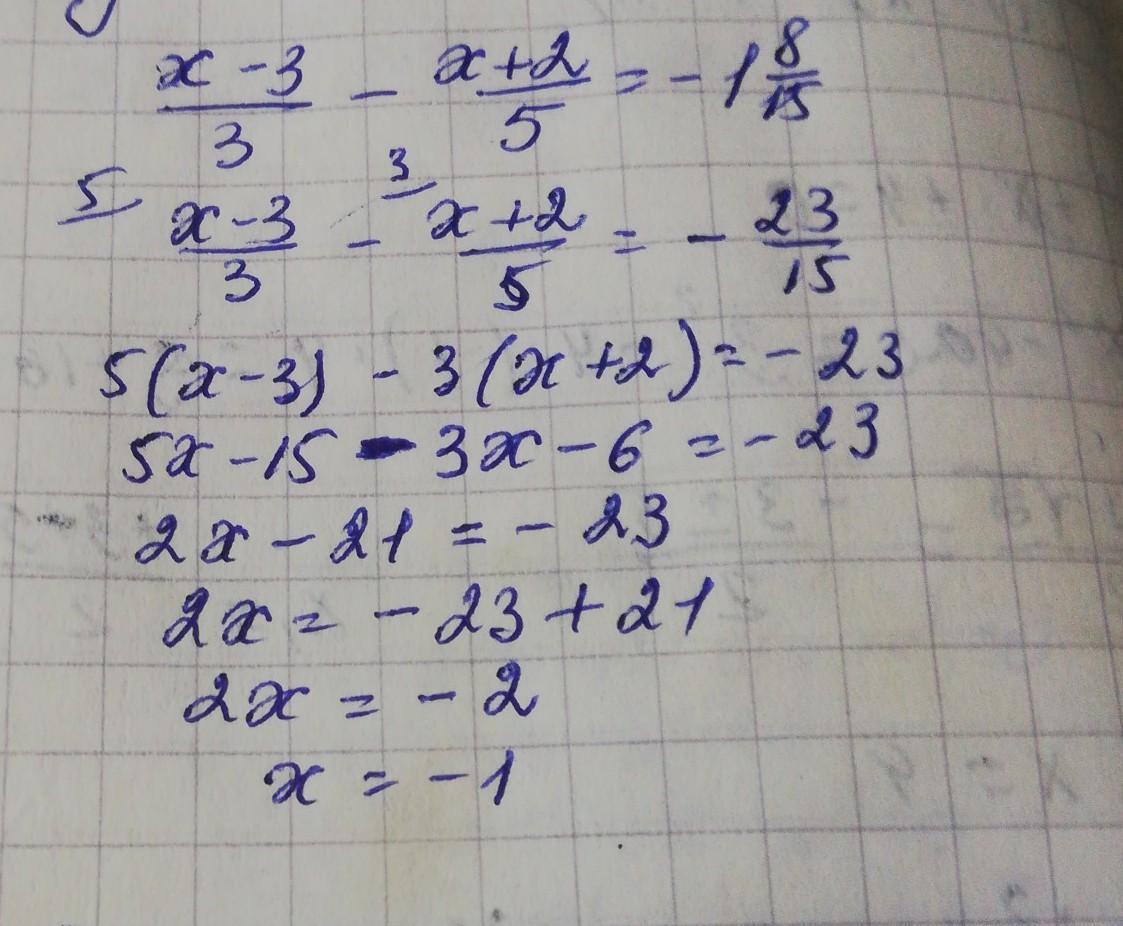 (x-3)/3 - (x+2)/5 = -1 8/15
5/ (x-3)/3 - 3/ (x+2)/5 = - 23/15
5(x-3) - 3(x+2) = - 23
5x-15 - 3x-6 = - 23
2x - 21 = - 23
2x = - 23 + 21
2x = - 2
x = - 1